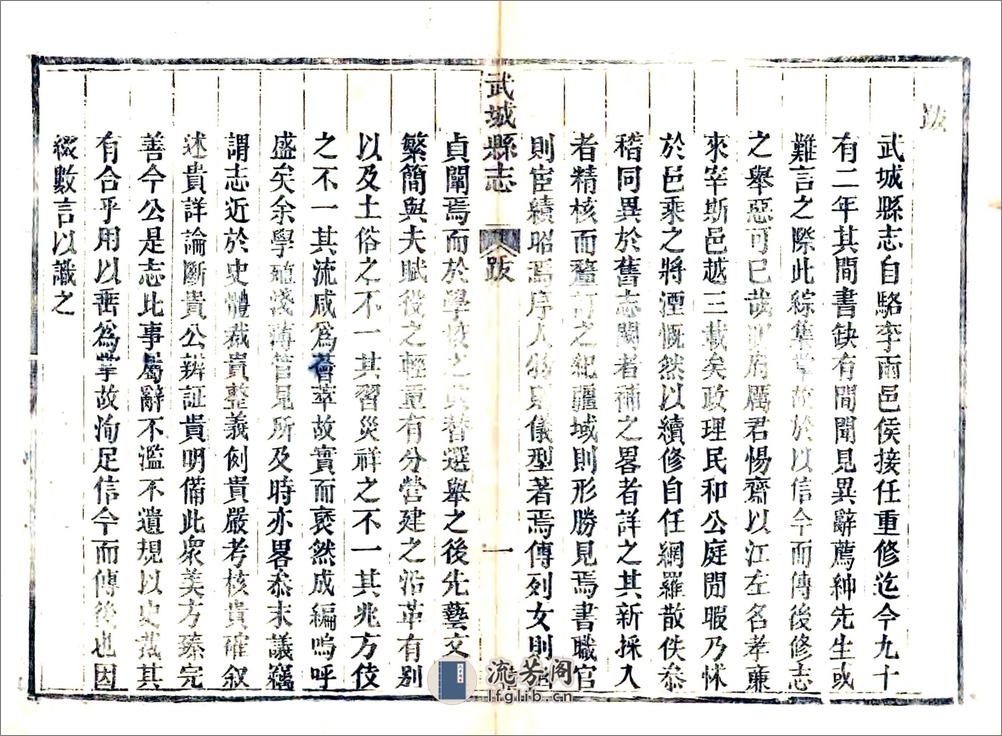 跋
武城縣志自駱李兩邑侯接任重修迄今九十
有二年其間書缺有間聞見異辭薦紳先生或
難言之際此綜集掌故於以信今而傳後修志
之舉惡可已哉 府厲君惕齋以江左名孝亷
來宰斯邑越三載矣政理民和公庭閒暇乃怵
於邑乘之將湮慨然以續修自任網羅散佚叅
稽同異於舊志闕者補之畧者詳之其新採入
者精核而釐訂之紀疆域則形勝見焉書職官
則宦績昭焉序人物則儀型著焉傳列女則
武城縣志
跋
一
貞闡焉而於學校之興替選舉之後先藝文
繁簡與夫賦役之輕重有分營建之沿革有别
以及土俗之不一其習災祥之不一其兆方伎
之不一其流咸爲薈萃故實而裒然成編嗚呼
盛矣余學殖淺薄管見所及時亦畧叅末議竊
謂志近於史體裁貴整義例貴嚴考核貴確叙
述貴詳論斷貴公辨証貴明備此衆美方臻完
善今公是志比事屬辭不濫不遺規以史裁其
有合乎用以垂爲掌故洵足信今而傳後也因
綴數言以識之
流芳阁
lfglib.cn